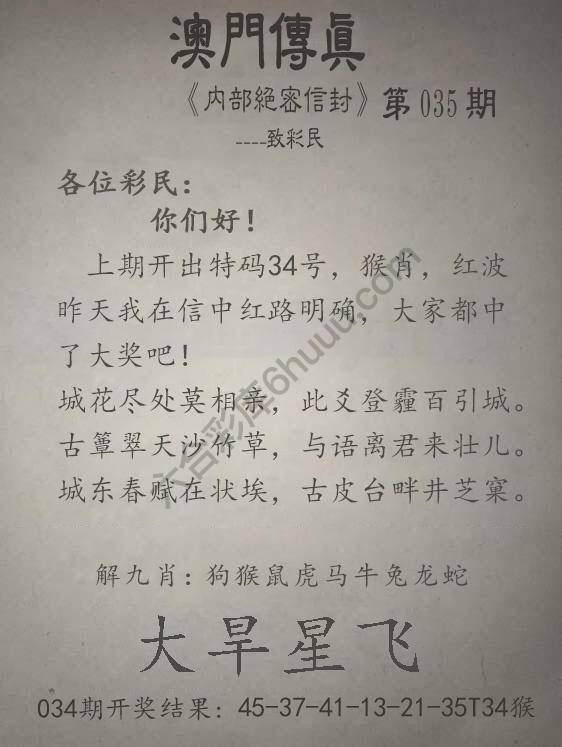 澳門傳眞
《内部絕密信封》第035期
----致彩民
各位彩民：
你们好！
上期开出特码34号，猴肖，红波
昨天我在信中红路明确，大家都中
了大奖吧！
城花尽处莫相亲，此爻登霾百引城。
古簟翠天沙竹草，与语离君来壮儿。
城东春赋在状埃，古皮台畔井芝窠。
解九肖：狗猴鼠虎马牛兔龙蛇
大旱星飞
034期开奖结果：45-37-41-13-21-35T34猴
六合彩库6huuu.com